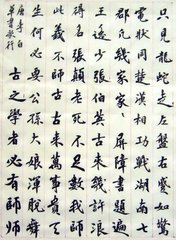 只見龍蛇走左盤右蹙如驚
電狀同楚漢相功戰湖南七
郡凡幾家家屏障書題遍
王逸少張伯英古來幾許浪
得名張顛老死不足數我師
此義不師古古來萬事貴天
生何必要公孫大娘渾脫舞
唐李白
草書歌行
古之學者必有師